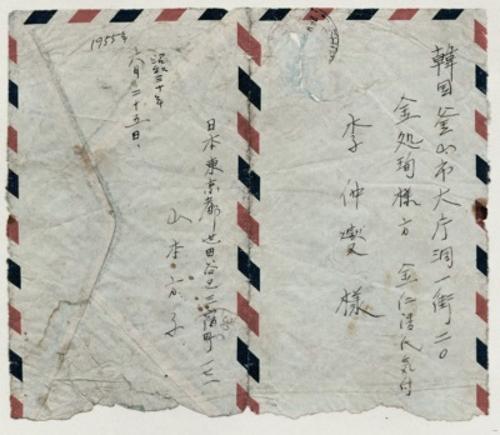 韓国釜山市大庁洞一街二〇
金処珣様方 金仁氏気付
李仲燮様
日本東京都世田谷区三宿町一七一
山本方子
昭和三十年
六月二十五日、
1955年